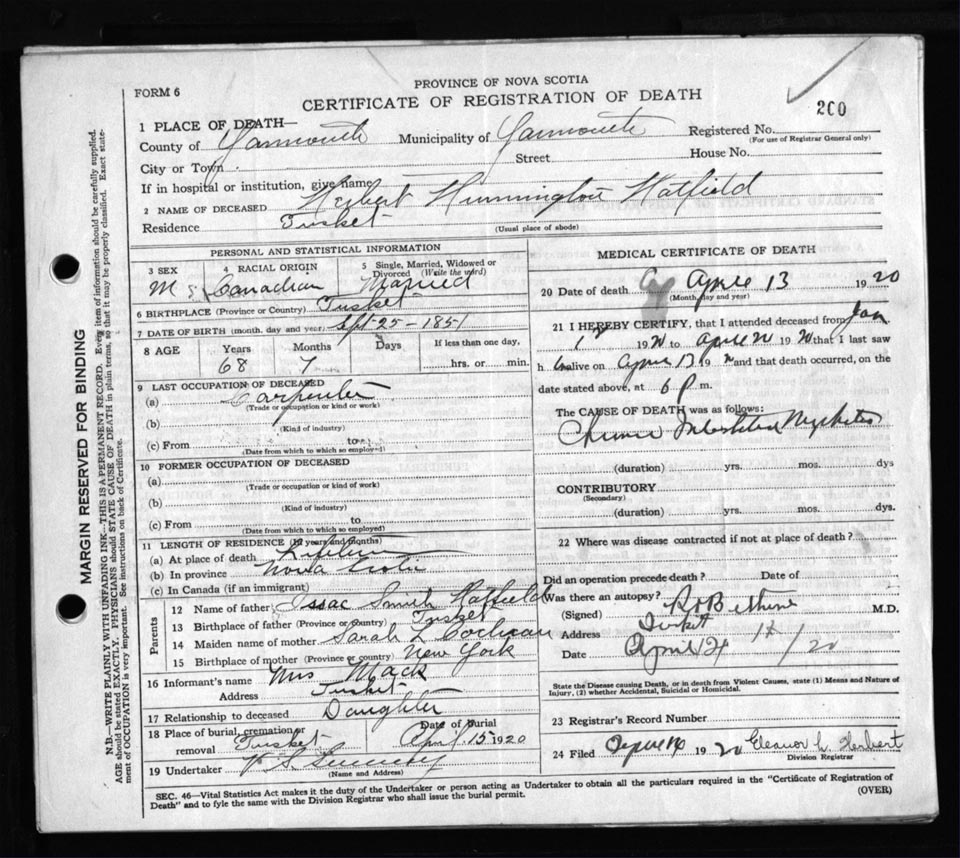 PROVINCE OF NOVA SCOTIA
FORM 6
CERTIFICATE OF REGISTRATION OF DEATH
200
1 PLACE OF DEATH—
County of Yarmouth Municipality of Yarmouth Registered No.
(For use of Registrar General only)
City or Town Street House No.
If in hospital or institution, give name
2 NAME OF DECEASED Herbert Hunnington Hatfield
Residence Tusket
(Usual place of abode)
PERSONAL AND STATISTICAL INFORMATION
3 SEX 4 RACIAL ORIGIN 5 Single, Married, Widowed or Divorced (Write the word)
M Canadian Married
6 BIRTHPLACE (Province or Country) Tusket
7 DATE OF BIRTH (month, day and year) Sept-25-1851
8 AGE Years Months Days If less than one day,
68 7 hrs. or min.
9 LAST OCCUPATION OF DECEASED
(a) Carpenter
(Trade or occupation or kind of work)
(b)
(Kind of industry)
(c) From to
(Date from which to which so employed)
10 FORMER OCCUPATION OF DECEASED
(a)
(Trade or occupation or kind of work)
(b)
(Kind of industry)
(c) From to
(Date from which to which so employed)
11 LENGTH OF RESIDENCE (in years and months)
(a) At place of death Lifetime
(b) In province Nova Scotia
(c) In Canada (if an immigrant)
Parents
12 Name of father Issac Smith Hatfield
13 Birthplace of father (Province or country) Tusket
14 Maiden name of mother Sarah L Cochran
15 Birthplace of mother (Province or country) New York
16 Informant's name Mrs Mack
Address Tusket
17 Relationship to deceased Daughter
18 Place of burial, cremation or removal Tusket Date of Burial April 15 1920
19 Undertaker
(Name and Address)
MEDICAL CERTIFICATE OF DEATH
20 Date of death April 13 1920
(Month, day and year)
21 I HEREBY CERTIFY, that I attended deceased from Jan
1st 1920 to April 1920 that I last saw
h im alive on April 13 19 20 and that death occurred, on the
date stated above, at 6 P m.
The CAUSE OF DEATH was as follows:
Chronic Interstitial Nephritis
(duration) yrs. mos. dys
CONTRIBUTORY
(Secondary)
(duration) yrs. mos. dys.
22 Where was disease contracted if not at place of death?
Did an operation precede death? Date of
Was there an autopsy?
(Signed) Bethune M.D.
Address Tusket
Date April 14 /20
State the Disease causing Death, or in death from Violent Causes, state (1) Means and Nature of
Injury, (2) whether Accidental, Suicidal or Homicidal.
23 Registrar's Record Number
24 Filed April 1920 Eleanor L. Herbert
Division Registrar
SEC. 46—Vital Statistics Act makes it the duty of the Undertaker or person acting as Undertaker to obtain all the particulars required in the "Certificate of Registration of
Death" and to fyle the same with the Division Registrar who shall issue the burial permit. (OVER)
MARGIN RESERVED FOR BINDING
N.B.—WRITE PLAINLY WITH UNFADING INK—THIS IS A PERMANENT RECORD. Every item of information should be carefully supplied.
AGE should be stated EXACTLY. PHYSICIANS should STATE CAUSE OF DEATH in plain terms, so that it may be properly classified. Exact state-
ment of OCCUPATION is very important. See instructions on back of Certificate.